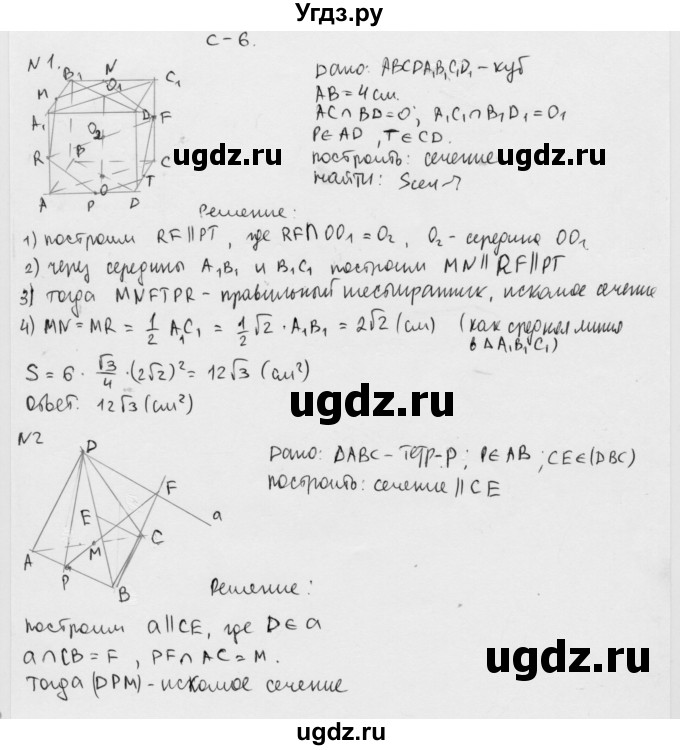 Угдз.ру
С-6.
N1.
B₁ N O₁ C₁
M
A₁ D₁ F
O₂
R B C
T
A P O D
Дано: ABCDA₁B₁C₁D₁ - куб
AB = 4 см.
AC∩BD=O; A₁C₁∩B₁D₁=O₁
P∈AD, T∈CD.
построить: сечение
найти: Sсеч-?
ugdz.ru ugdz.ru
Решение:
1) построим RF∥PT, где RF∩OO₁=O₂, O₂ - середина OO₁
2) через середины A₁B₁ и B₁C₁ построим MN∥RF∥PT
3) тогда MNFTPR - правильный шестигранник, искомое сечение
4) MN = MR = 1/2 A₁C₁ = 1/2 √2 · A₁B₁ = 2√2 (см) (как средняя линия
в ΔA₁B₁C₁)
S = 6 · √3/4 · (2√2)² = 12√3 (см²)
ответ: 12√3 (см²)
ugdz.ru
N2
D
F
E
a
A M C
P
B
Дано: DABC - тетр-р; P∈AB; CE∈(DBC)
построить: сечение ∥ CE
Решение:
построим a∥CE, где D∈a
a∩CB=F, PF∩AC=M.
тогда (DPM) - искомое сечение
ugdz.ru ugdz.ru
ugdz.ru